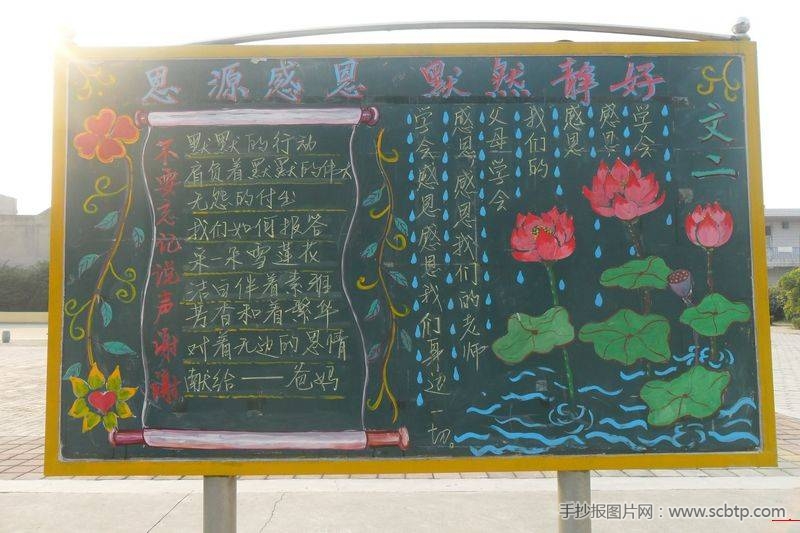 思源感恩 默然静好
文二
不要忘记说声谢谢
默默的行动
肩负着默默的伟大
无怨的付出
我们如何报答
采一朵雪莲花
洁白伴着素雅
芳香和着繁华
对着无边的恩情
献给——爸妈
学会
感恩
感恩
我们的
父母学会
感恩感恩我们的老师
学会感恩感恩我们身边一切。
手抄报图片网:www.scbtp.com